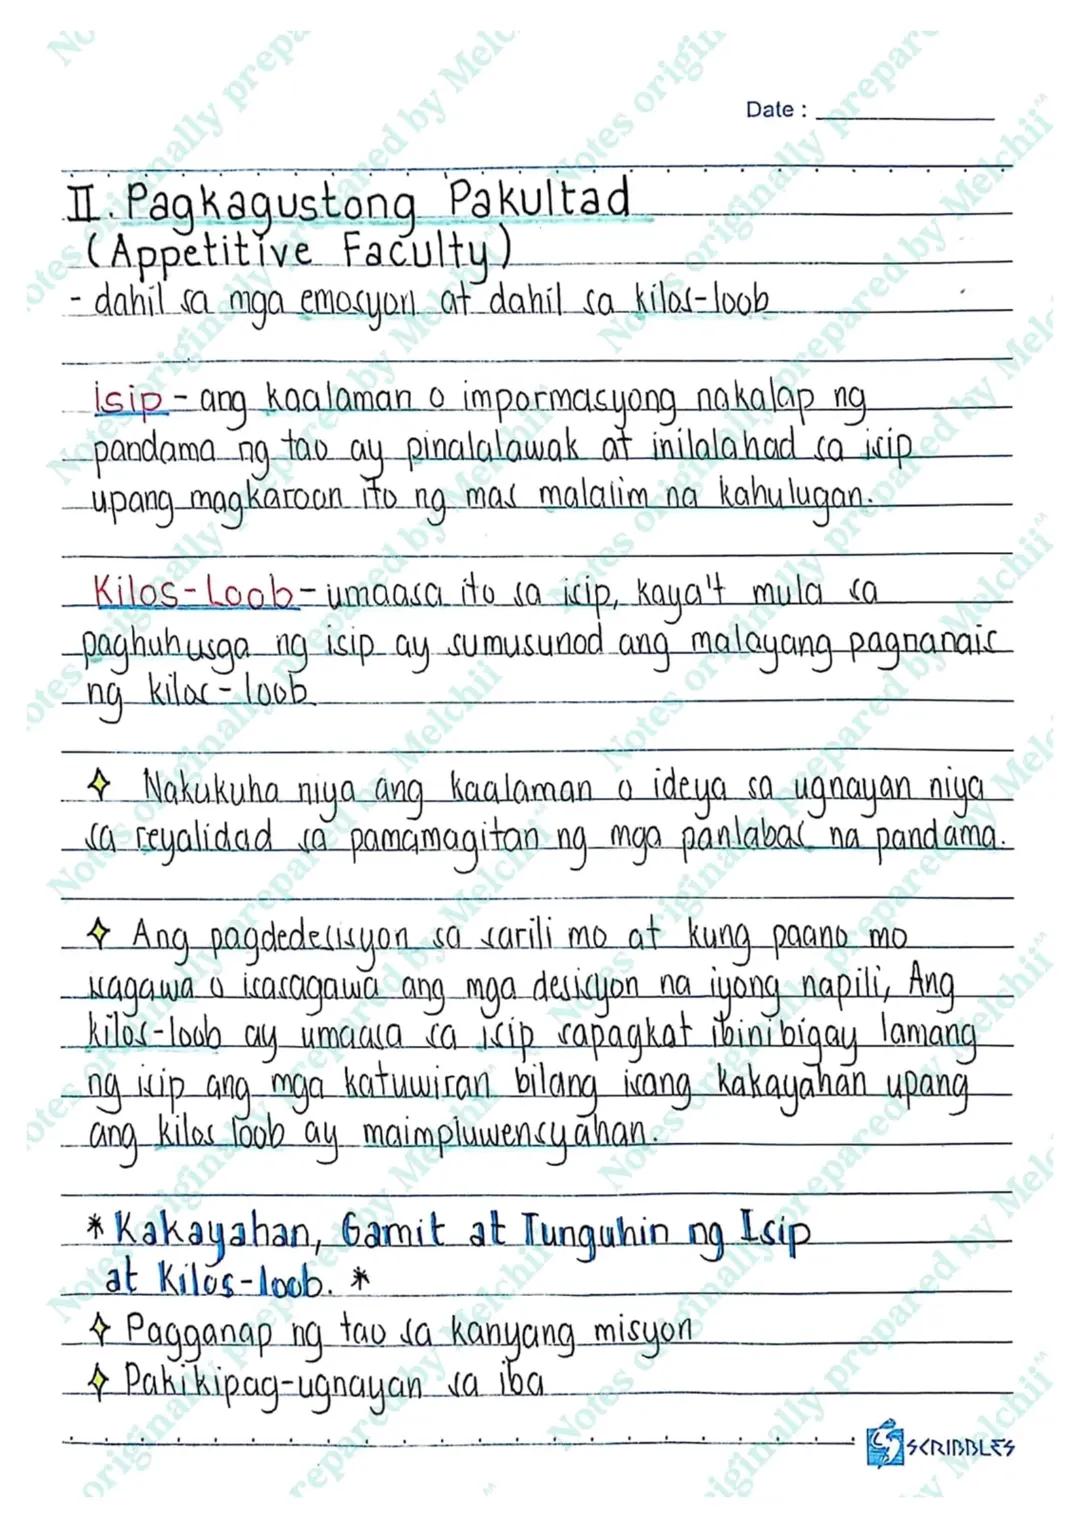 Date :
II. Pagkagustong Pakultad
(Appetitive Faculty)
- dahil sa mga emosyon at dahil sa kilos-loob
isip - ang kaalaman o impormasyong nakalap ng
pandama ng tao ay pinalalawak at inilalahad sa isip
upang magkaroon ito ng mas malalim na kahulugan.
Kilos-Loob - umaasa ito sa isip, kaya't mula sa
paghuhusga ng isip ay sumusunod ang malayang pagnanais
ng kilos-loob
Nakukuha niya ang kaalaman o ideya sa ugnayan niya
sa reyalidad sa pamamagitan ng mga panlabas na pandama.
Ang pagdedesisyon sa sarili mo at kung paano mo
isagawa o isasagawa ang mga desisyon na iyong napili, Ang
kilos-loob ay umaasa sa isip sapagkat ibinibigay lamang
ng isip ang mga katuwiran bilang isang kakayahan upang
ang kilos loob ay maimpluwensyahan.
* Kakayahan, Gamit at Tunguhin ng Isip
at Kilos-loob. *
Pagganap ng tao sa kanyang misyon
Pakikipag-ugnayan sa iba
SCRIBBLES
Notes originally prepared by Melchii^^